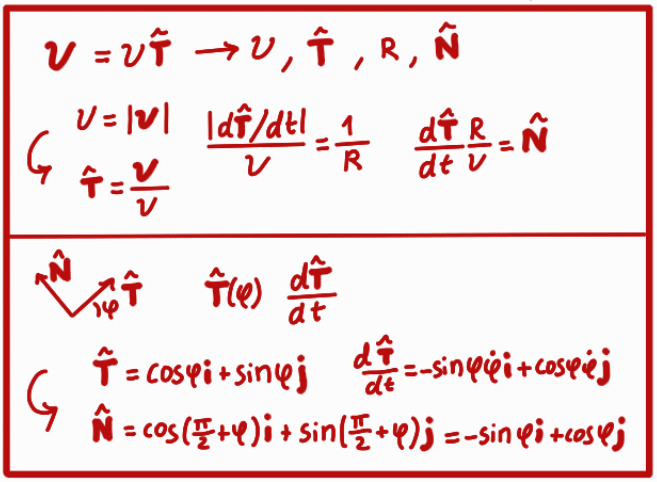 𝒗 = vT̂ → v, T̂, R, N̂
v = |𝒗| |dT̂/dt|/v = 1/R dT̂/dt R/v = N̂
T̂ = 𝒗/v
N̂ φ T̂ T̂(φ) dT̂/dt
T̂ = cosφi + sinφj dT̂/dt = -sinφφ̇i + cosφφ̇j
N̂ = cos(π/2+φ)i + sin(π/2+φ)j = -sinφi + cosφj